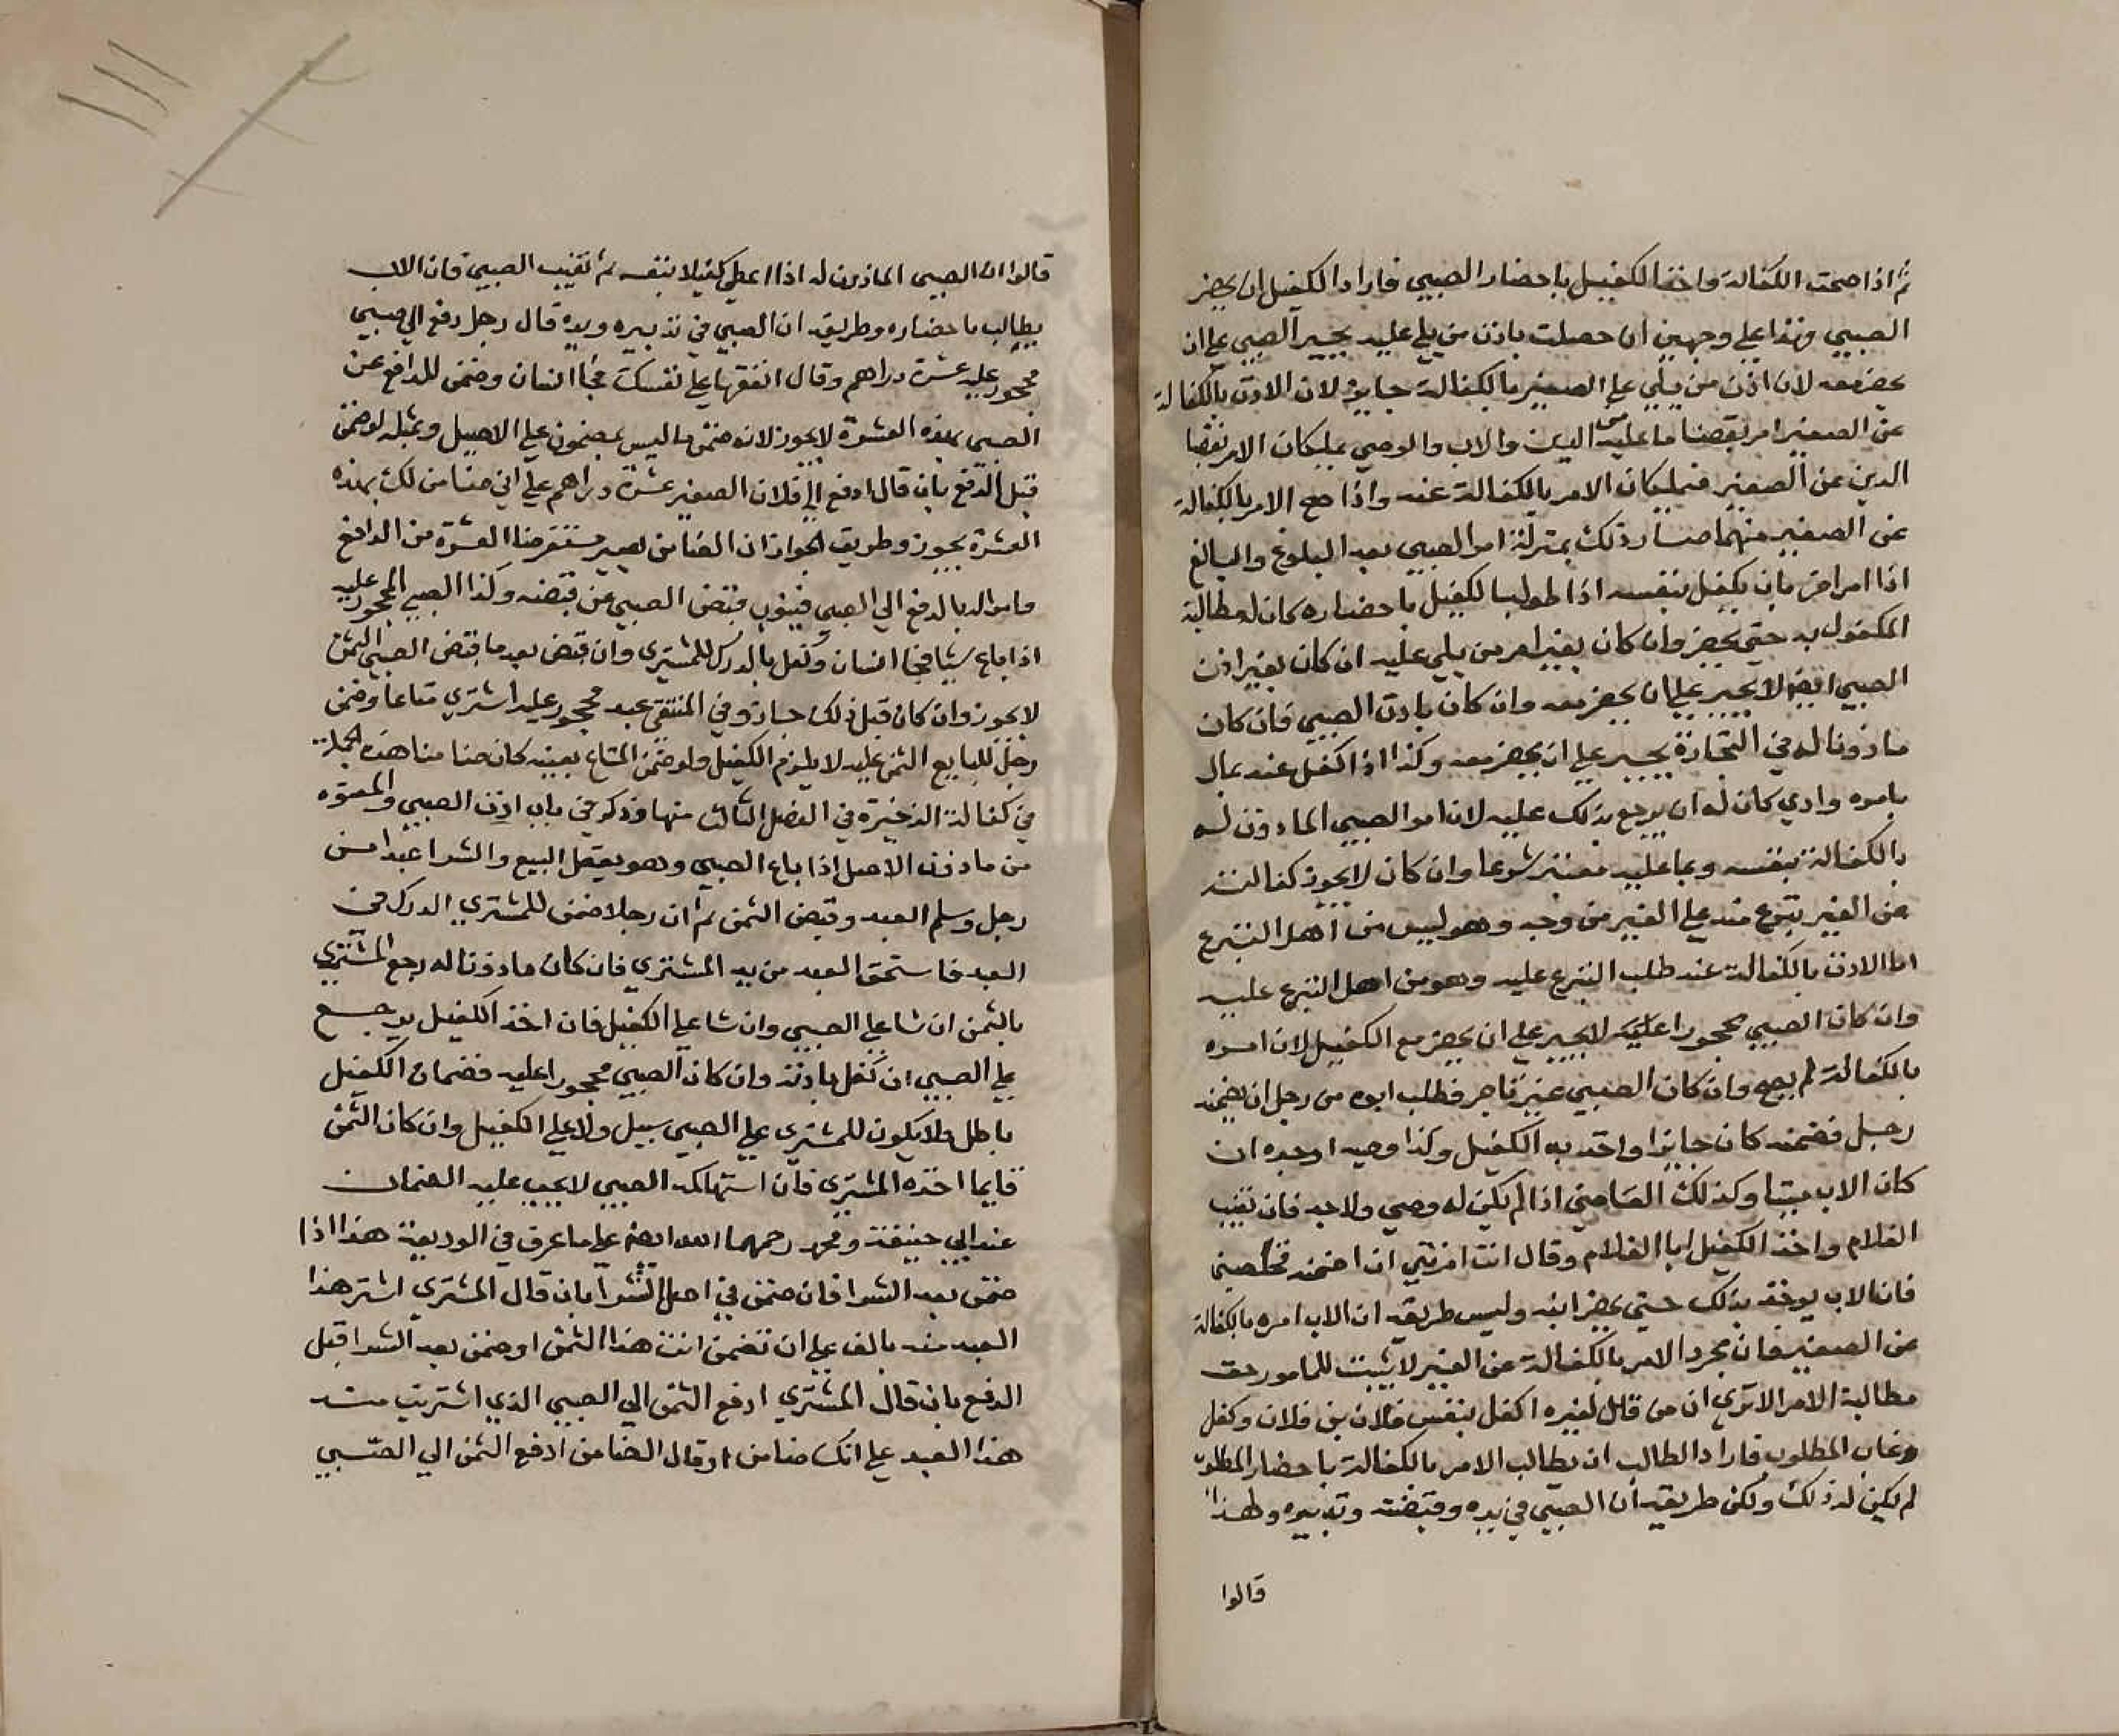 ثم اذا صحت الكفالة واخذ الكفيل باحضار الصبي فاراد الكفيل ان يحضر
الصبي فهذا علي وجهين ان حصلت باذن من يلي عليه يجبر الصبي علي ان
يحضر معه لان اذن من يلي علي الصغير بالكفالة جايز لان الاذن بالكفالة
عن الصغير امر بقضا ما عليه من الدين والاب والوصي يملكان الامر بقضا
الدين عن الصغير فيملكان الامر بالكفالة عنه واذا صح الامر بالكفالة
عن الصغير منهما صار ذلك بمنزلة امر الصبي بعد البلوغ والبالغ
اذا امر اخر بان يكفل بنفسه اذا طولب الكفيل باحضاره كان له مطالبة
المكفول به حتي يحضر وان كان بغير امر من يلي عليه ان كان بغير اذن
الصبي ايضا لا يجبر علي ان يحضر معه وان كان باذن الصبي فان كان
ماذونا له في التجارة يجبر علي ان يحضر معه وكذا اذا كفل عنه بمال
بامره وادي كان له ان يرجع بذلك عليه لان امر الصبي الماذون له
بالكفالة بنفسه وبما عليه معتبر شرعا وان كان لا يجوز كفالته
عن الغير تبرع منه علي الغير من وجه وهو ليس من اهل التبرع
اما الاذن بالكفالة عنه طلب التبرع عليه وهو من اهل التبرع عليه
وان كان الصبي محجورا عليه لا يجبر علي ان يحضر مع الكفيل لان امره
بالكفالة لم يصح وان كان الصبي غير تاجر فطلب ابوه من رجل ان يضمنه
رجل فضمنه كان جايزا واخذ به الكفيل وكذا وصيه او جده ان
كان الاب ميتا وكذلك القاضي اذا لم يكن له وصي ولا جد فان تغيب
الغلام واخذ الكفيل ابا الغلام وقال انت امرتني ان اضمنه فخلصني
فان الاب يوخذ بذلك حتي يحضر ابنه وليس طريقه ان الاب امره بالكفالة
عن الصغير فان مجرد الامر بالكفالة عن الغير لا يثبت للمامور حق
مطالبة الامر الا تري ان من قال لغيره اكفل بنفس فلان بن فلان وكفل
وغاب المطلوب فاراد الطالب ان يطالب الامر بالكفالة باحضار المطلوب
لم يكن له ذلك ولكن طريقه ان الصبي في يده وقبضته وتدبيره ولهذا
قالوا
قالوا ان الصبي الماذون له اذا اعطي كفيلا بنفسه ثم تغيب الصبي فان الاب
يطالب باحضاره وطريقه ان الصبي في تدبيره ويده قال رجل دفع الي صبي
محجور عليه عشرة دراهم وقال انفقها علي نفسك فجا انسان وضمن للدافع عن
الصبي بهذه العشرة لا يجوز لانه ضمن ما ليس بمضمون علي الاصيل وبمثله لو ضمن
قبل الدفع بان قال ادفع الي فلان الصغير عشرة دراهم علي اني ضامن لك بهذه
العشرة يجوز وطريق الجواز ان الضامن يصير مستقرضا العشرة من الدافع
وامر اله بالدفع الي الصبي فينوب قبض الصبي عن قبضه وكذا الصبي المحجور عليه
اذا باع شيا فجا انسان وكفل بالدرك للمشتري وان قبض بعد ما قبض الصبي الثمن
لا يجوز وان كان قبل ذلك جاز وفي المنتقي عبد محجور عليه اشتري متاعا وضمن
رجل للبايع الثمن عليه لا يلزم الكفيل ولو ضمن المتاع بعينه كان ضامنا هذه الجملة
في كفالة الذخيرة في الفصل الثالث منها وذكر في باب اذن الصبي والمعتوه
من ماذون الاصل اذا باع الصبي وهو يعقل البيع والشرا عبدا من
رجل وسلم العبد وقبض الثمن ثم ان رجلا ضمن للمشتري الدرك في
العبد فاستحق العبد من يد المشتري فان كان ماذونا له رجع المشتري
بالثمن ان شا علي الصبي وان شا علي الكفيل فان اخذ الكفيل يرجع
علي الصبي ان كفل باذنه وان كان الصبي محجورا عليه فضمان الكفيل
باطل ولا يكون للمشتري علي الصبي سبيل ولا علي الكفيل وان كان الثمن
قايما اخذه المشتري فان استهلكه الصبي لا يجب عليه الضمان
عند ابي حنيفة ومحمد رحمهما الله ايضا علي ما عرف في الوديعة هذا اذا
ضمن بعد الشرا فان ضمن في اصل الشرا بان قال المشتري اشتر هذا
العبد منه بالف علي ان تضمن انت هذا الثمن او ضمن بعد الشرا قبل
الدفع بان قال المشتري ادفع الثمن الي الصبي الذي اشتريت منه
هذا العبد علي انك ضامن او قال الضامن ادفع الثمن الي الصبي